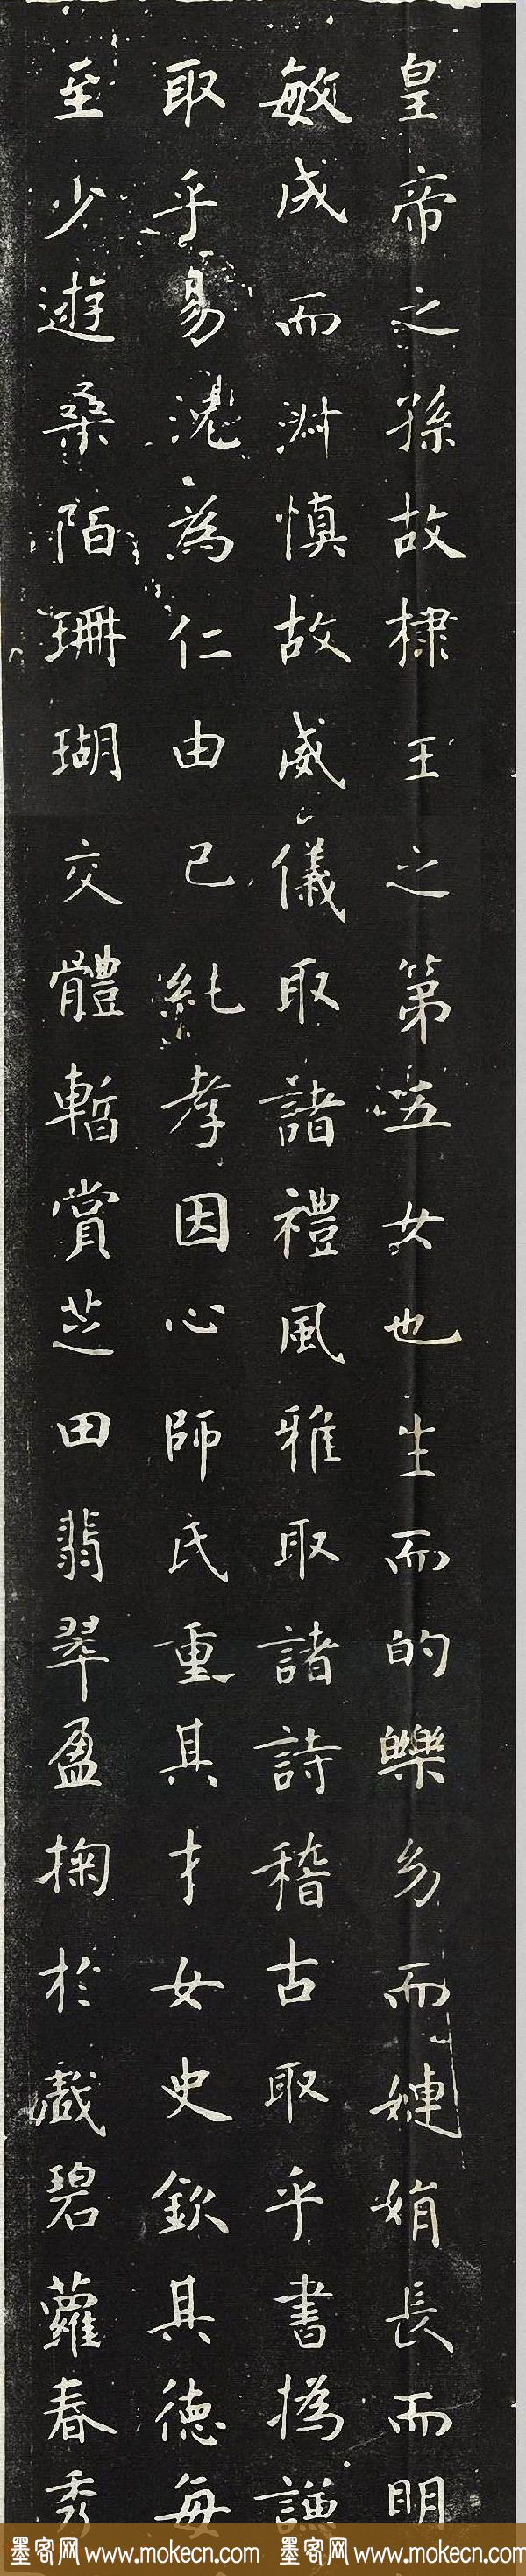 皇帝之孫故棣王之第五女也生而的皪幼而婕娟長而明
敏成而淑慎故威儀取諸禮風雅取諸詩稽古取乎書撝謙
取乎易況為仁由己純孝因心師氏重其才女史欽其德每
至少遊桑陌珊瑚交體暫賞芝田翡翠盈掬於戲碧蘿春秀
墨客网 www.mokecn.com 墨客网 www.mokecn.com